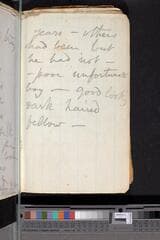 years — others
had been but
he had not —
— poor unfortunate
boy — good look
dark haired
fellow —